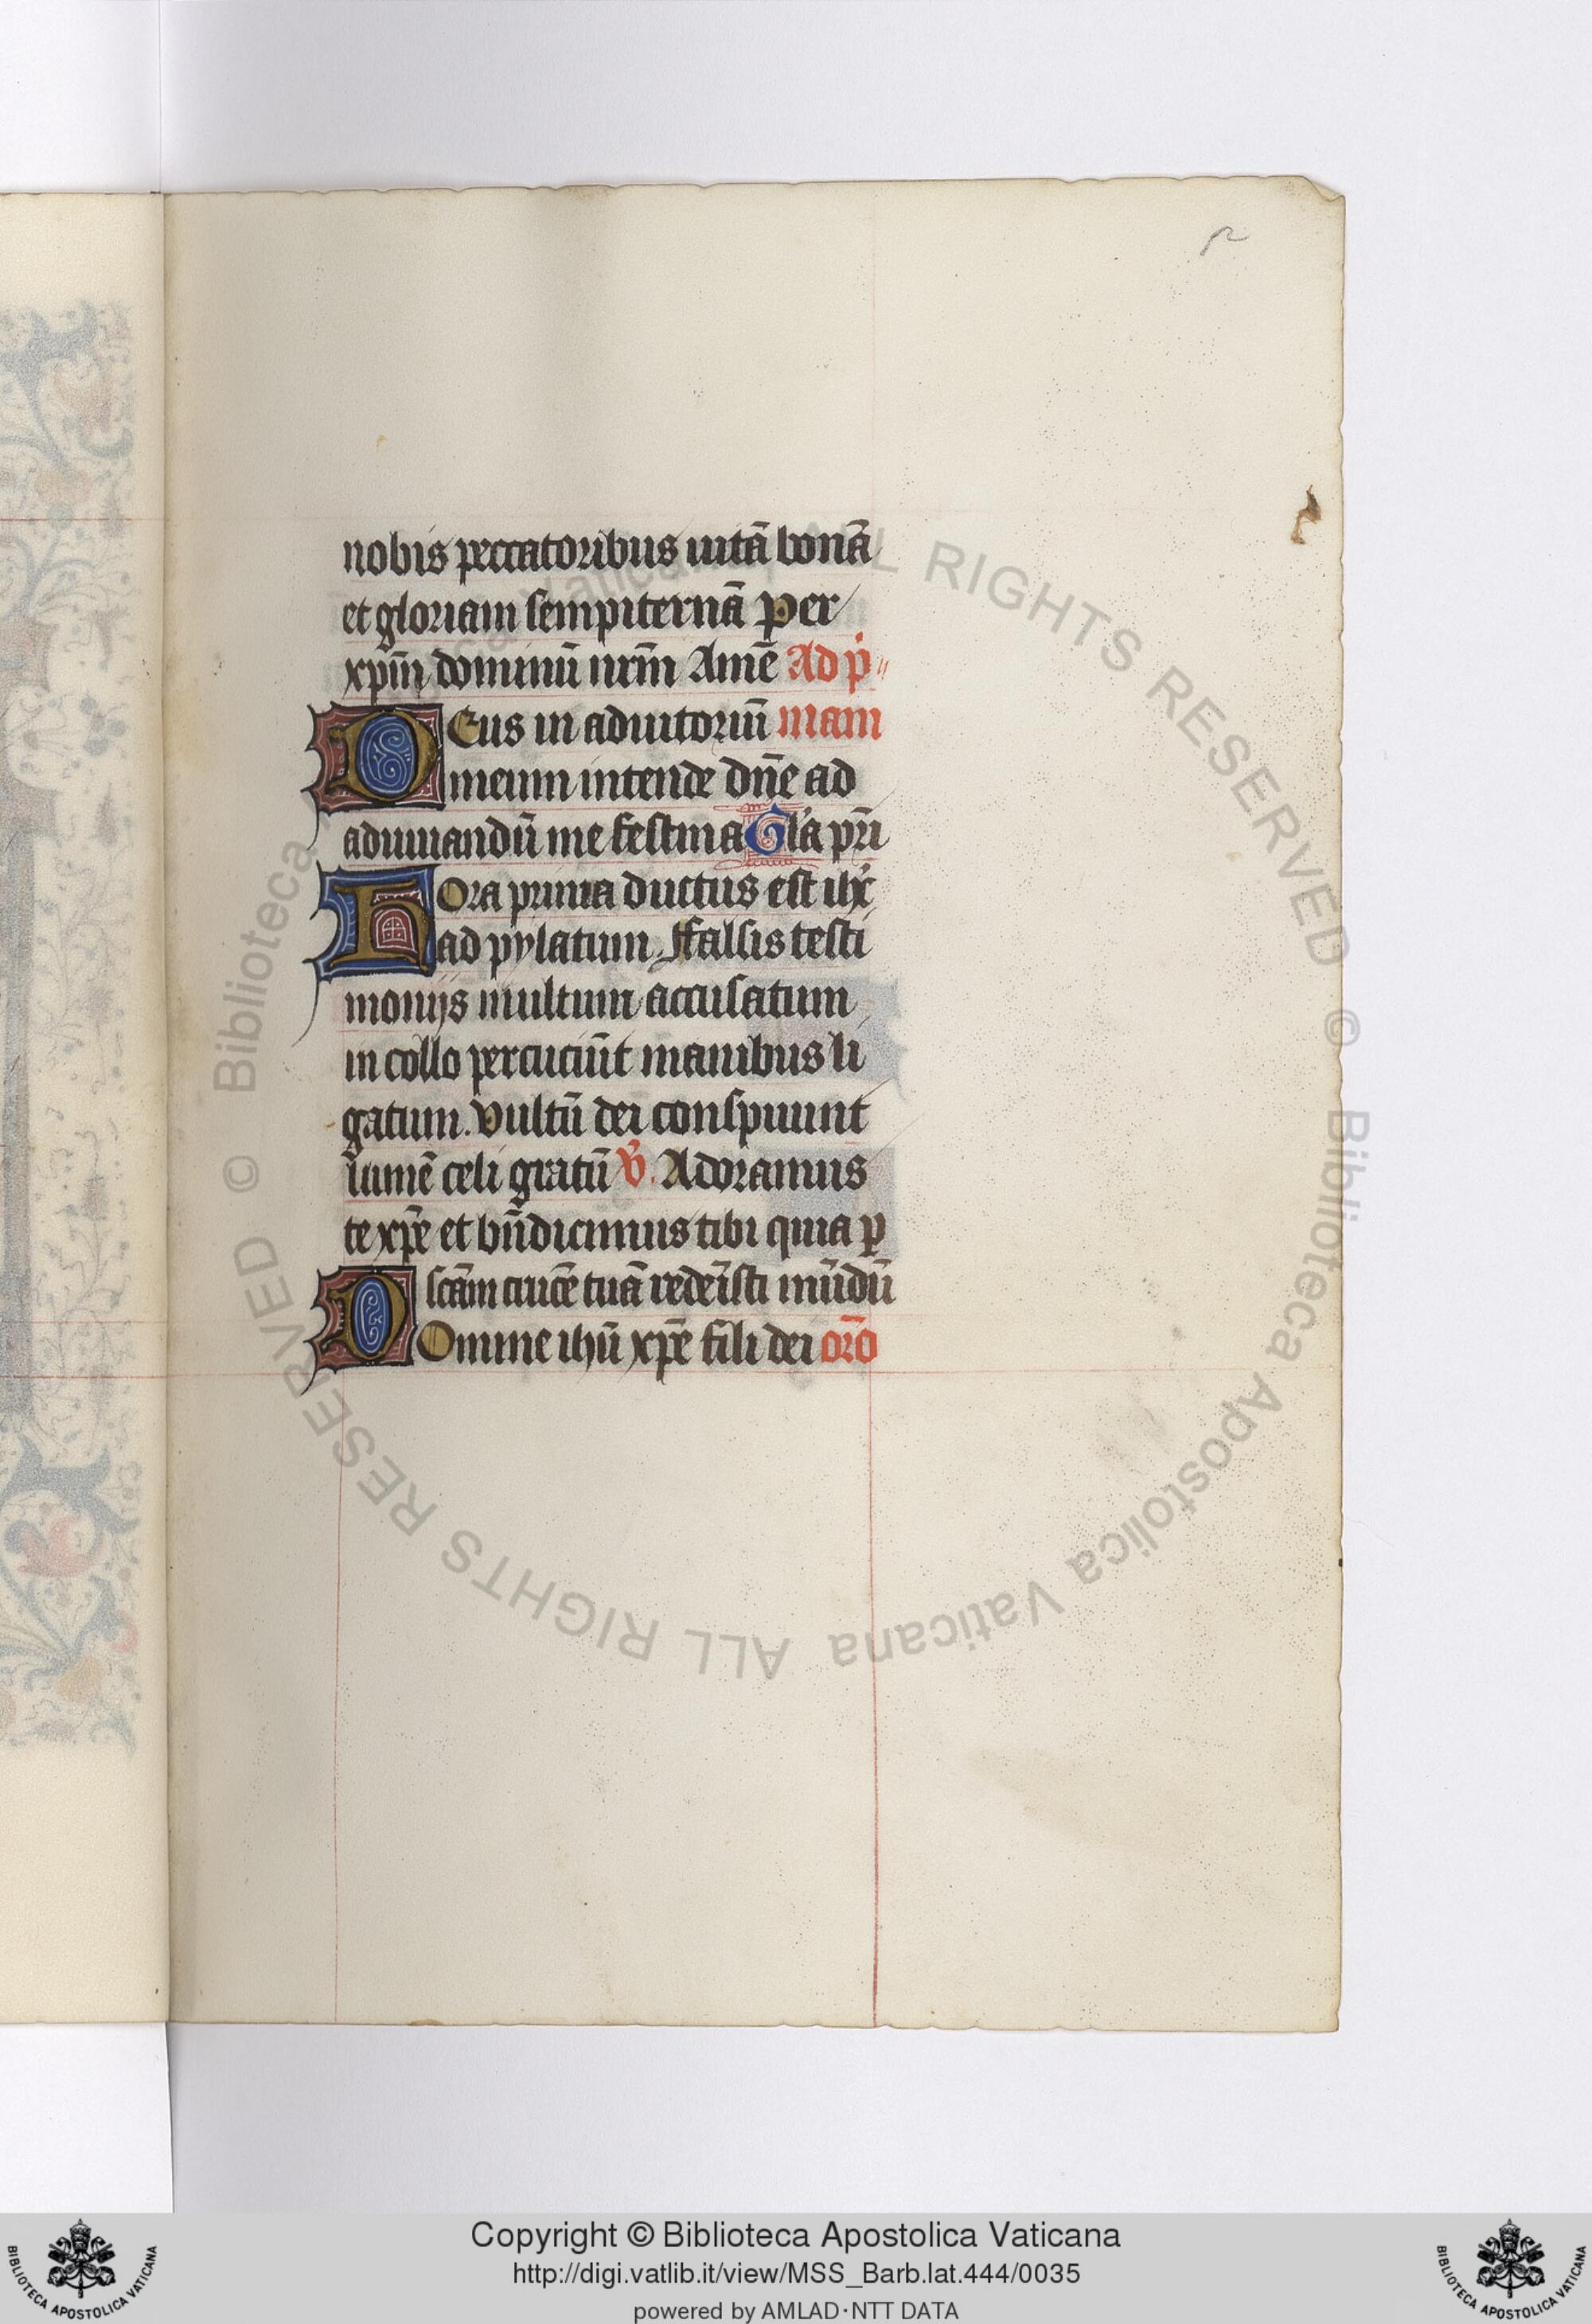 nobis peccatoribus uitā bonā
et gloriam sempiternā Per
xp̄m dominū nrm̄ Amē Ad p̄
DEus in adiutoriū mam
meum intende dn̄e ad
adiuuandū me festina Gl'a pr̄i
HOra prima ductus est ihc̄
ad pylatum. Ffalsis testi
monijs multum accusatum
in collo percuciūt manibus li
gatum. Vultū dei conspuunt
lumē celi gratū v̄. Adoramus
te xp̄e et bn̄dicimus tibi quia ꝑ
scām crucē tuā redem̄isti mūdū
DOmine ihū xp̄e fili dei or̄o
© Biblioteca Apostolica Vaticana ALL RIGHTS RESERVED © Biblioteca Apostolica Vaticana ALL RIGHTS RESERVED
Copyright © Biblioteca Apostolica Vaticana
http://digi.vatlib.it/view/MSS_Barb.lat.444/0035
powered by AMLAD·NTT DATA
BIBLIOTECA APOSTOLICA VATICANA
BIBLIOTECA APOSTOLICA VATICANA